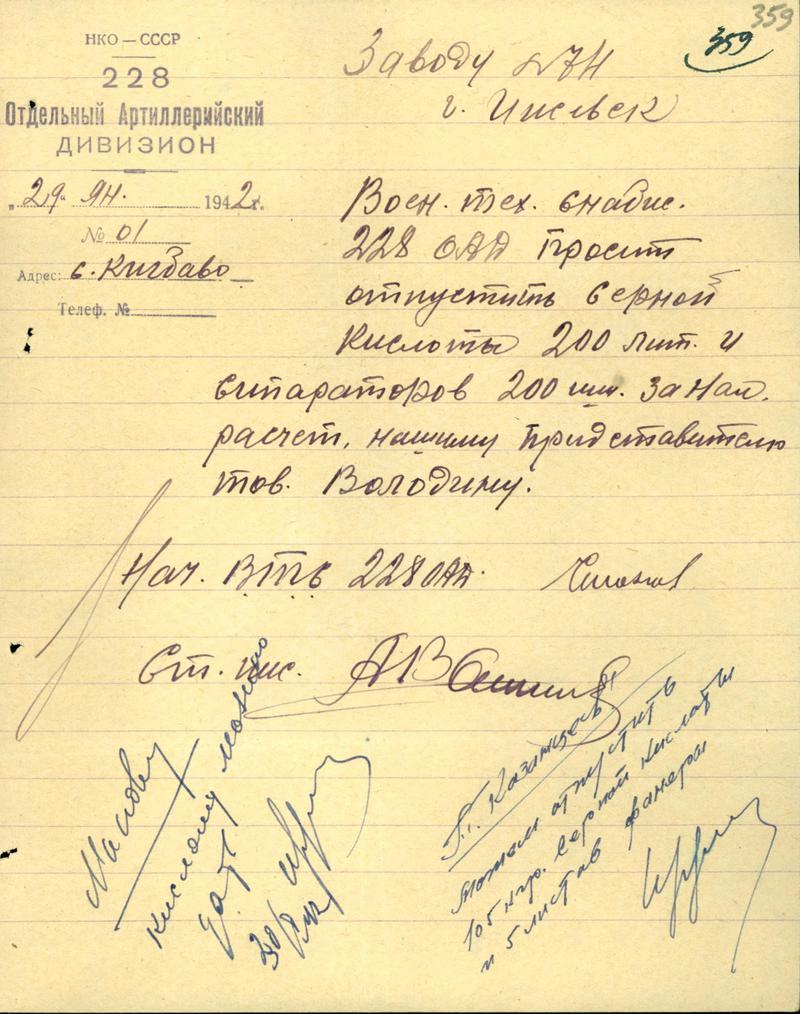 359
359
НКО — СССР
228
Отдельный Артиллерийский
ДИВИЗИОН
„29" ЯН. 1942г.
№ 01
Адрес: с. Кигбаво
Телеф. №
Заводу
г. Ижевск
Воен. тех. снабж.
228 ОАД просит
отпустить серной
кислоты 200 лит. и
сипараторов 200 шт. за нал.
расчет, нашему придставителю
тов. Володину.
Нач. ВТС 228 ОАД.
Ст. пис.
Маслову
кислоту можно
дать
30/I 42
т. Казанцевы
Можем отпустить
105 кгр. серной кислоты
и 5 листов фанеры